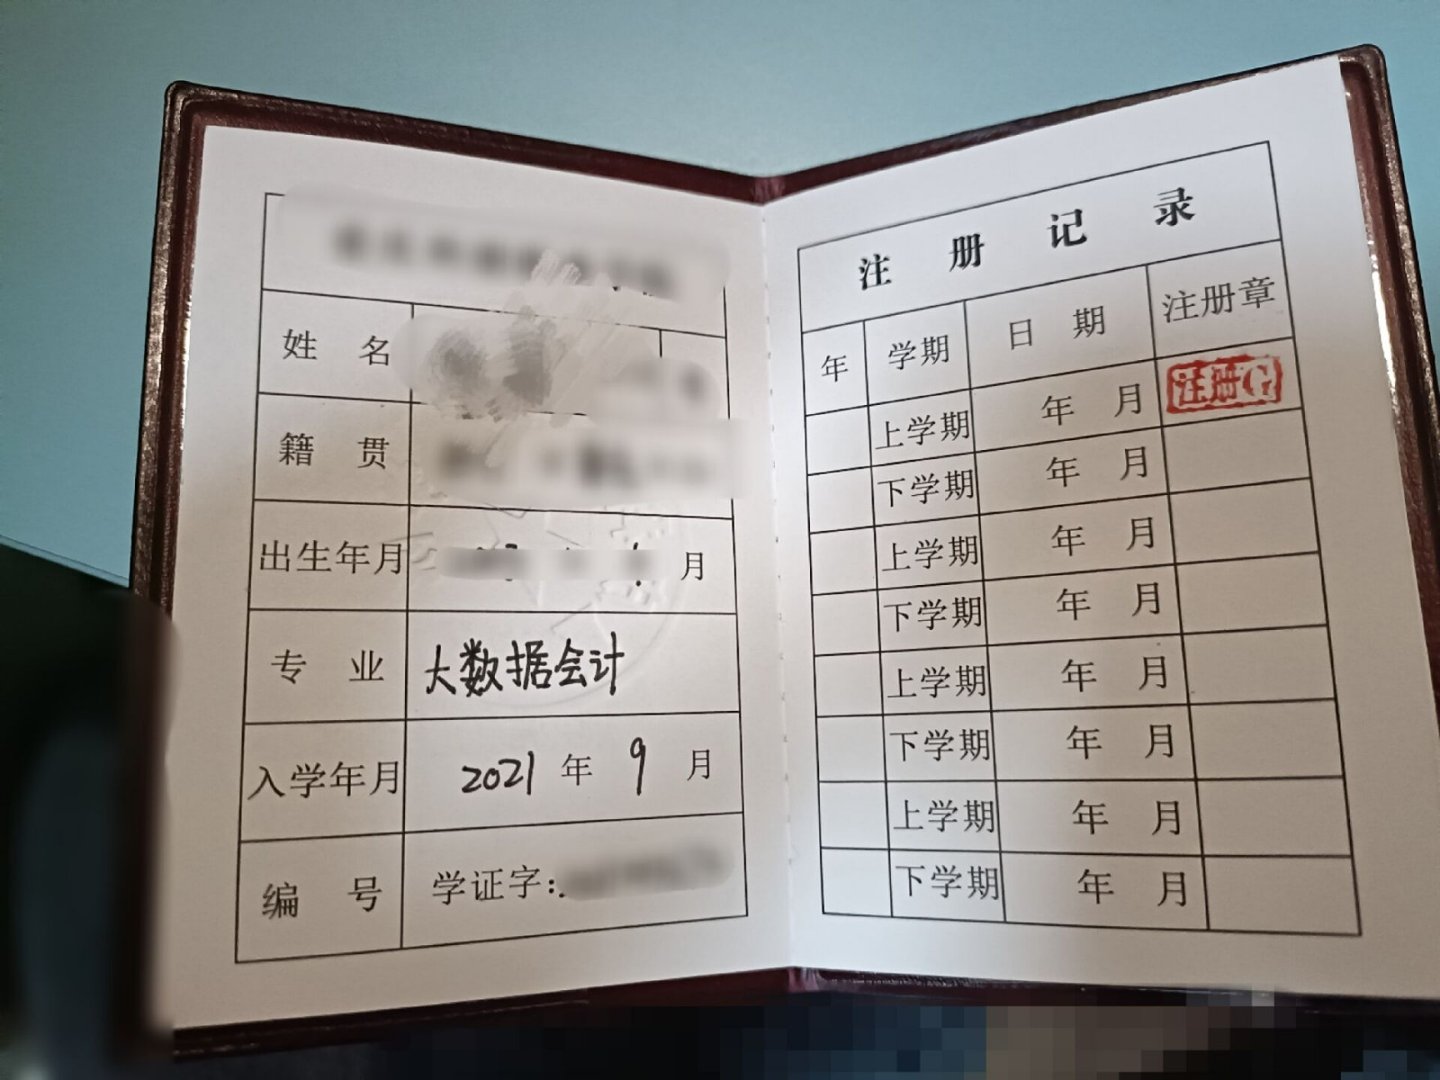 姓 名
籍 贯
出生年月 月
专 业 大数据会计
入学年月 2021 年 9 月
编 号 学证字:
注 册 记 录
年 学期 日 期 注册章
上学期 年 月 注册G
下学期 年 月
上学期 年 月
下学期 年 月
上学期 年 月
下学期 年 月
上学期 年 月
下学期 年 月